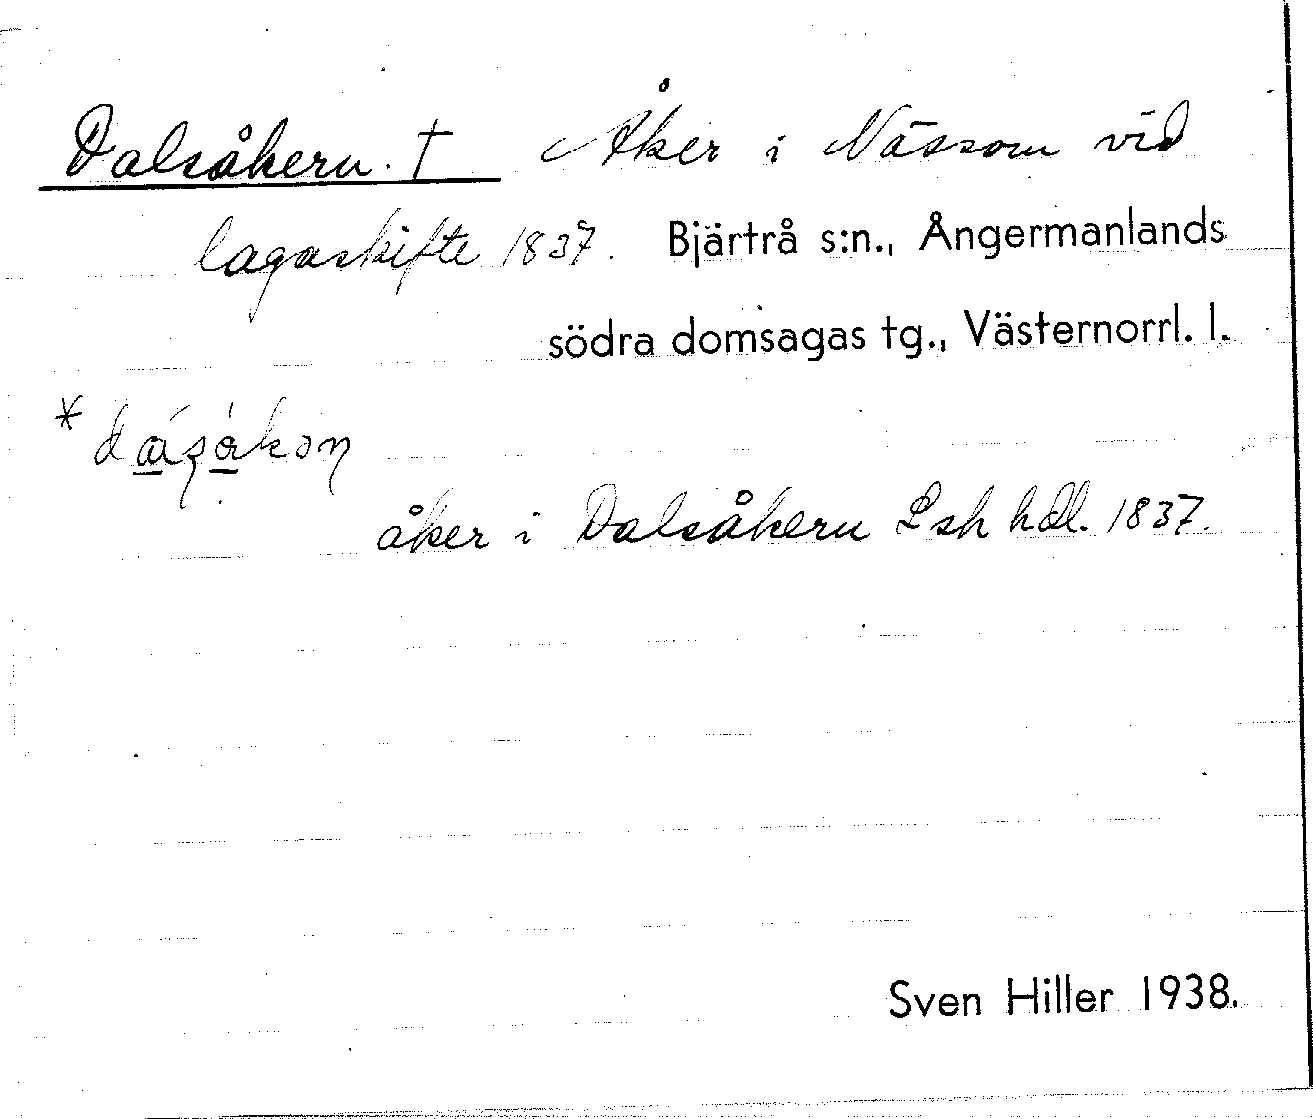 Dalsåkern. † Åker i Nässom vid
lagaskifte 1837. Bjärtrå s:n., Ångermanlands
södra domsagas tg., Västernorrl. l.
*
åker i Dalsåkern Lsk hdl. 1837.
Sven Hiller 1938.